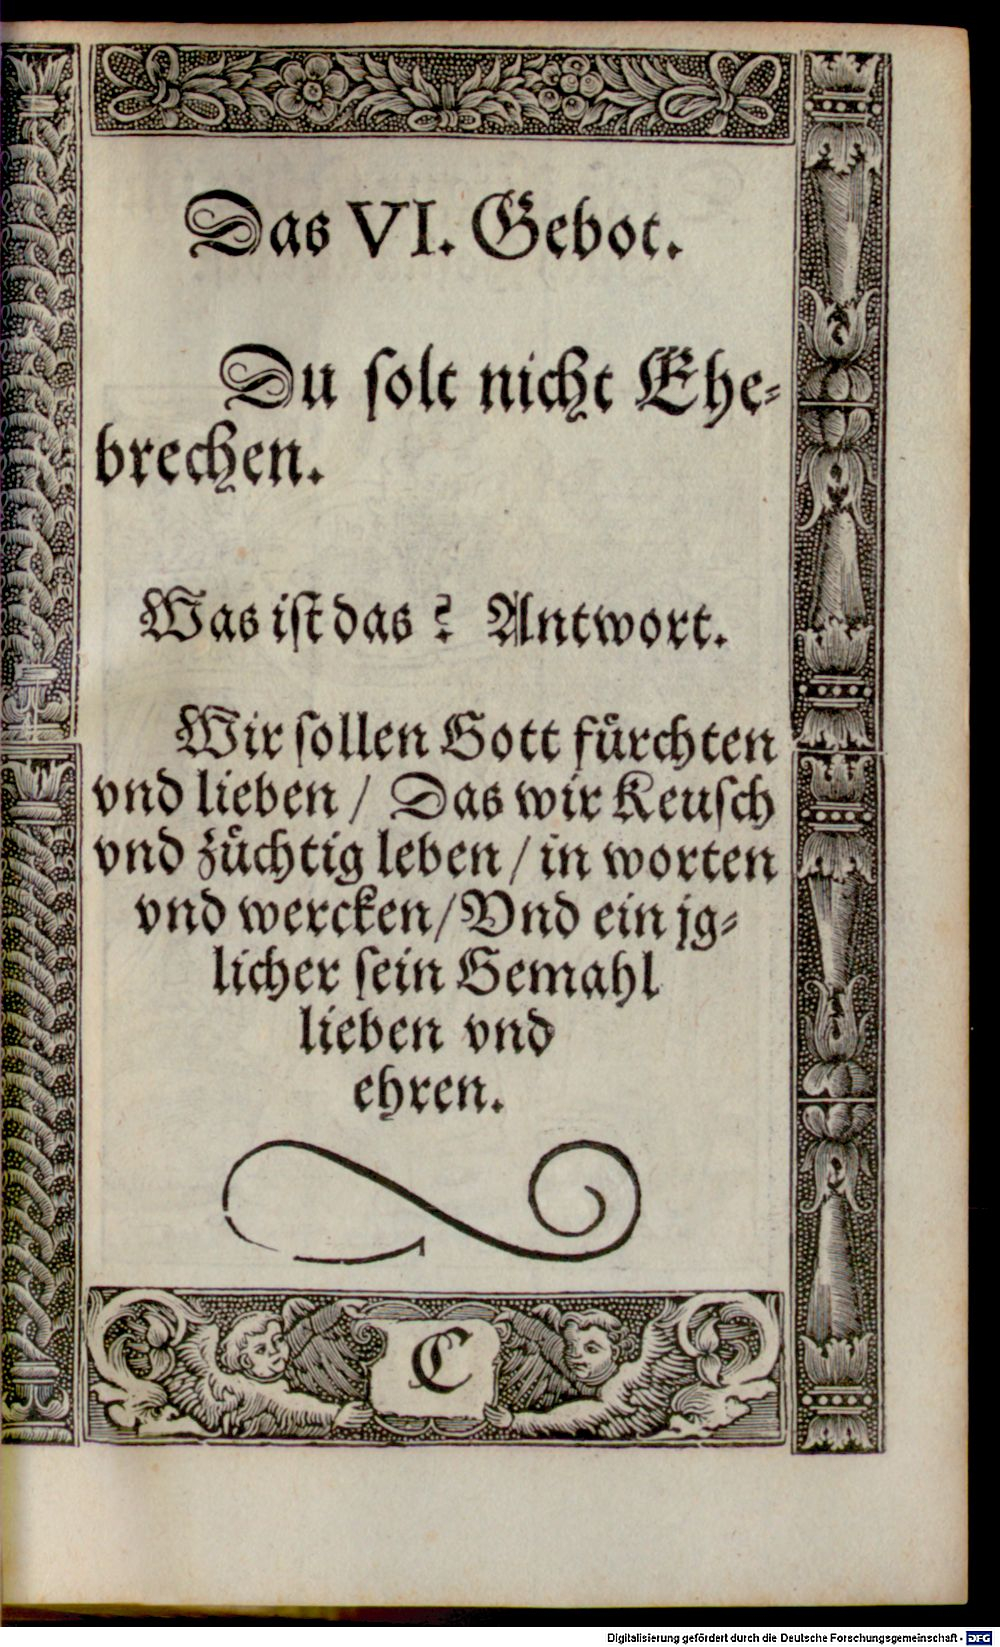 Das VI. Gebot.
Du solt nicht Ehe⸗
brechen.
Was ist das? Antwort.
Wir sollen Gott fuͤrchten
vnd lieben / Das wir Keusch
vnd zuͤchtig leben / in worten
vnd wercken / Vnd ein jg⸗
licher sein Gemahl
lieben vnd
ehren.
C
Digitalisierung gefördert durch die Deutsche Forschungsgemeinschaft - DFG